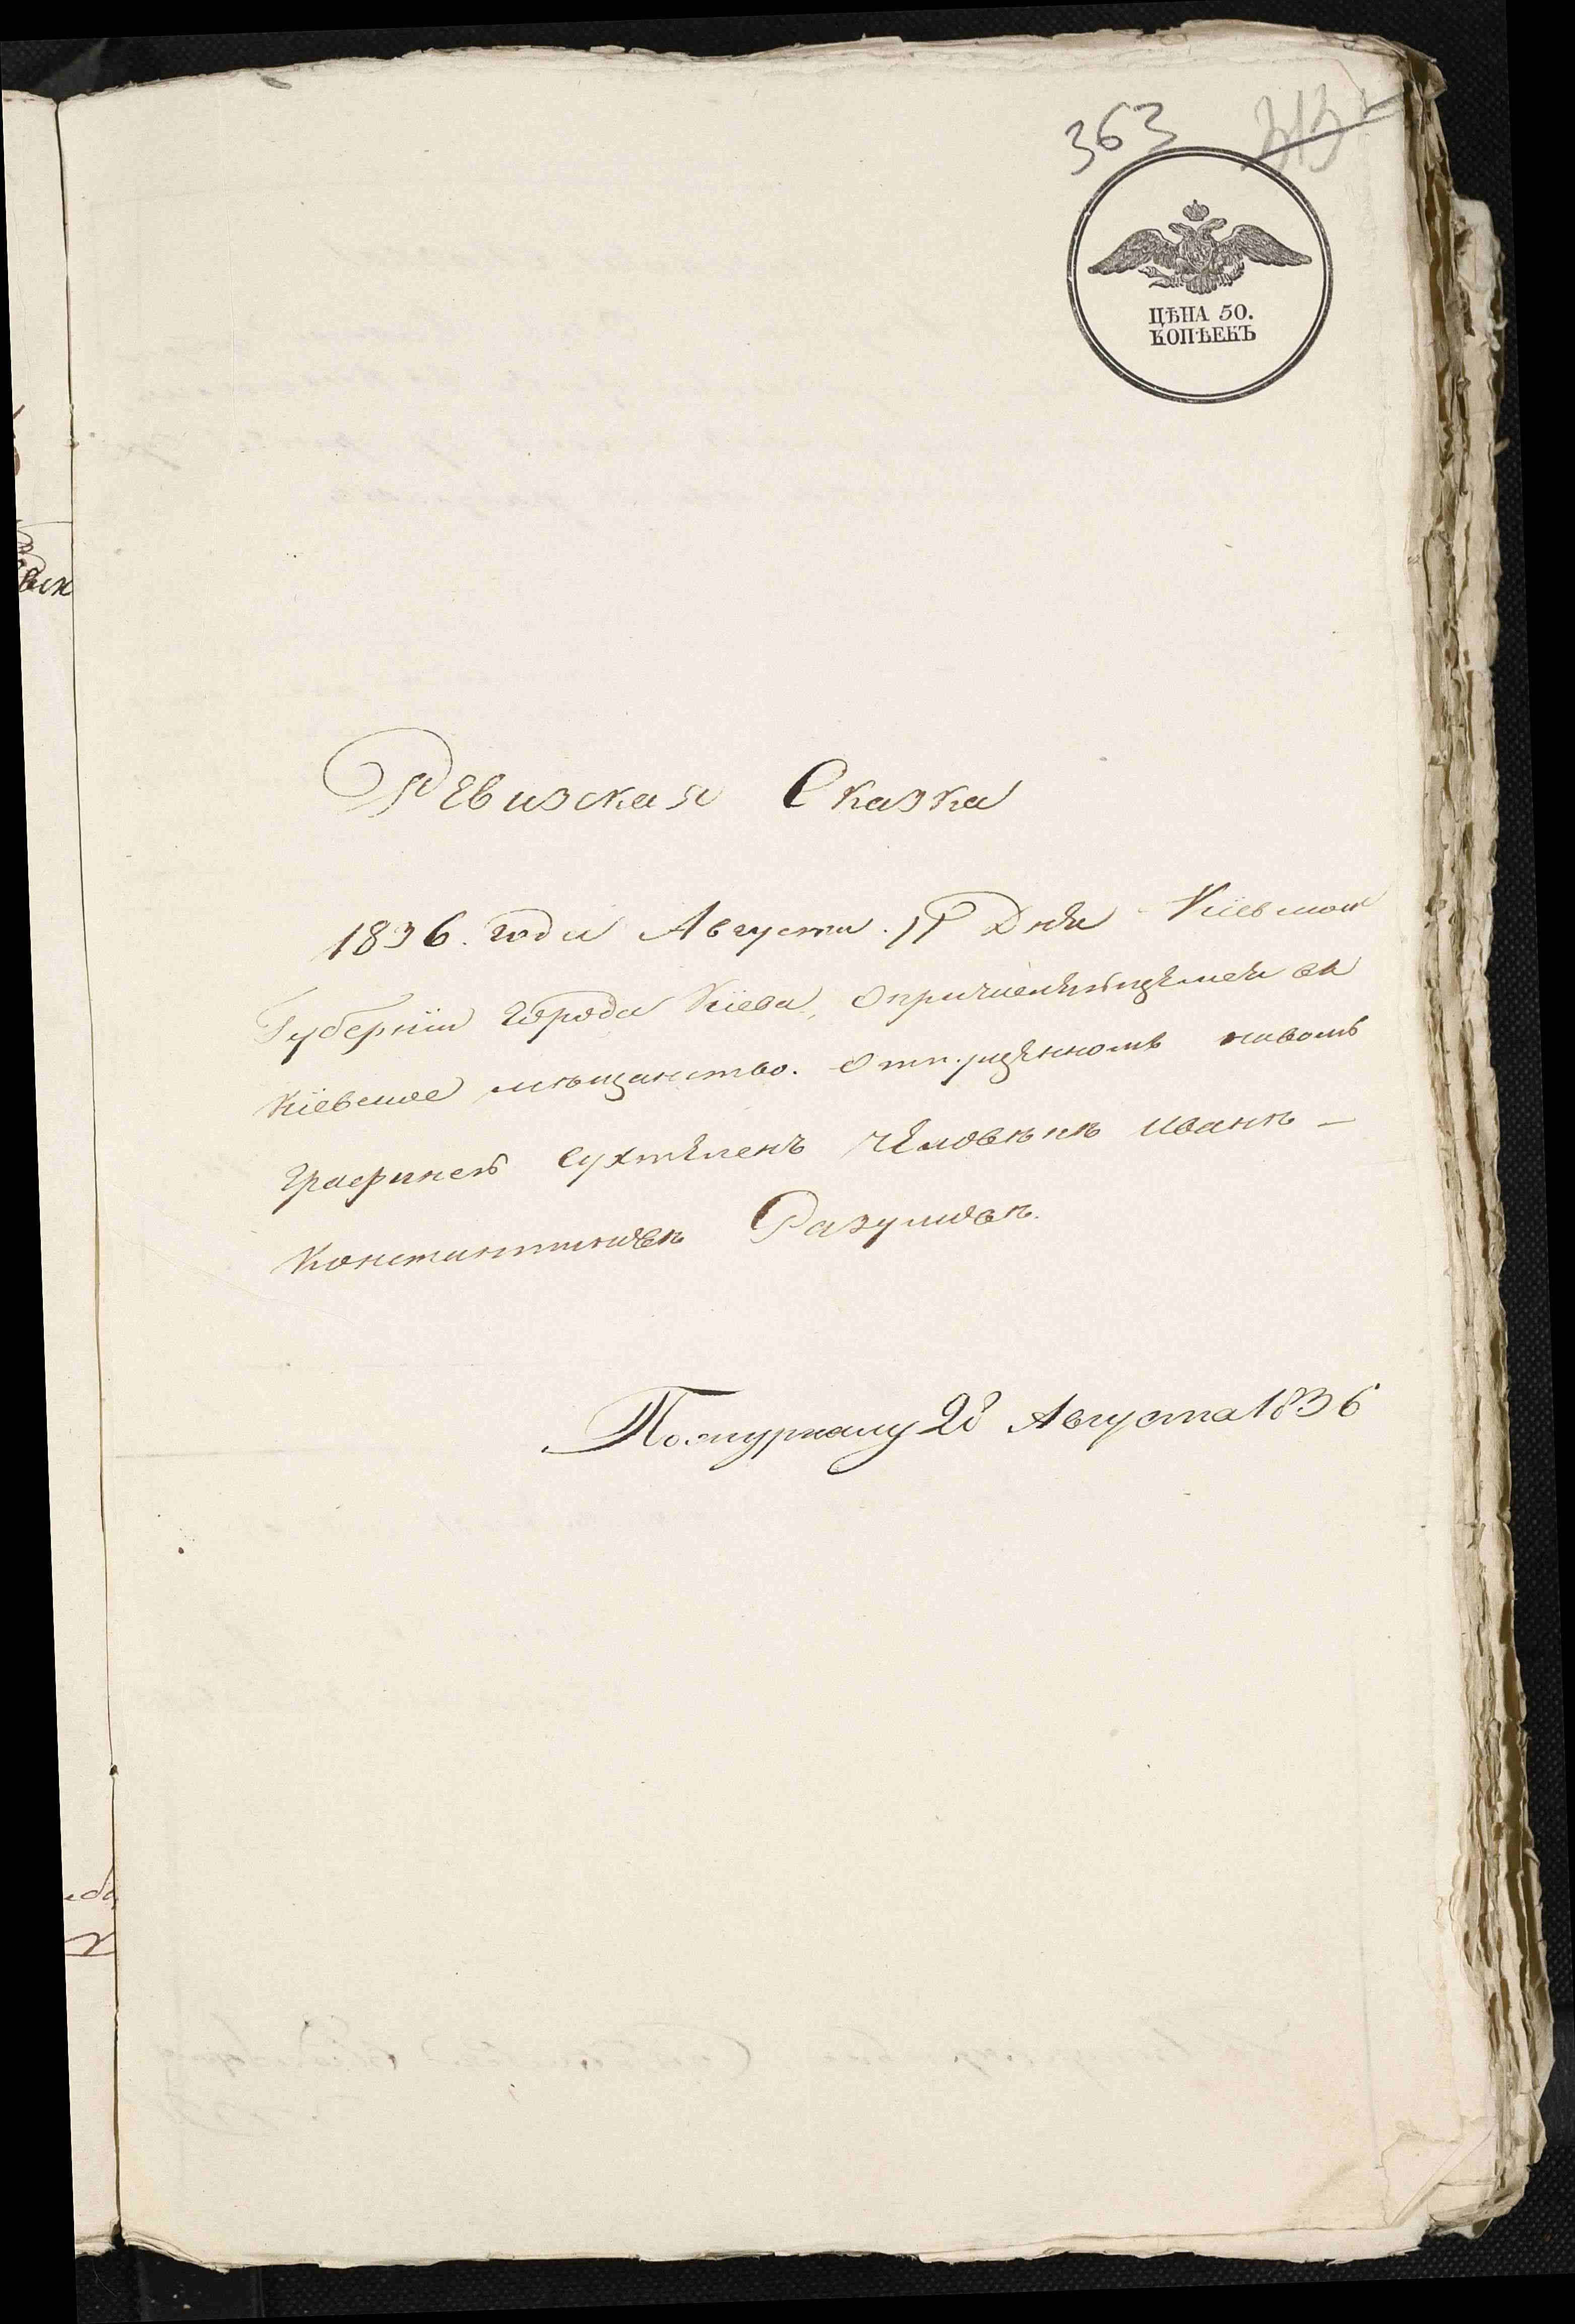 363 313
ЦѢНА 50.
КОПѢЕКЪ
Ревизская Сказка
1836. года Августа. 11 Дня Кіевской
Губерніи города Кіева, о причисляющемся въ
Кіевское мѣщанство. отпущенномъ на волю
графиней Сухтеленъ человѣкѣ Иванѣ —
Константиновѣ Разумовѣ.
По журналу 28 Августа 1836